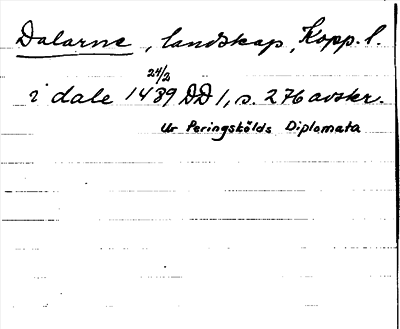 Dalarne, landskap, Kopp. l.
24/2
i dale 1489 DD 1, s. 276 avskr.
Ur Peringskölds Diplomata